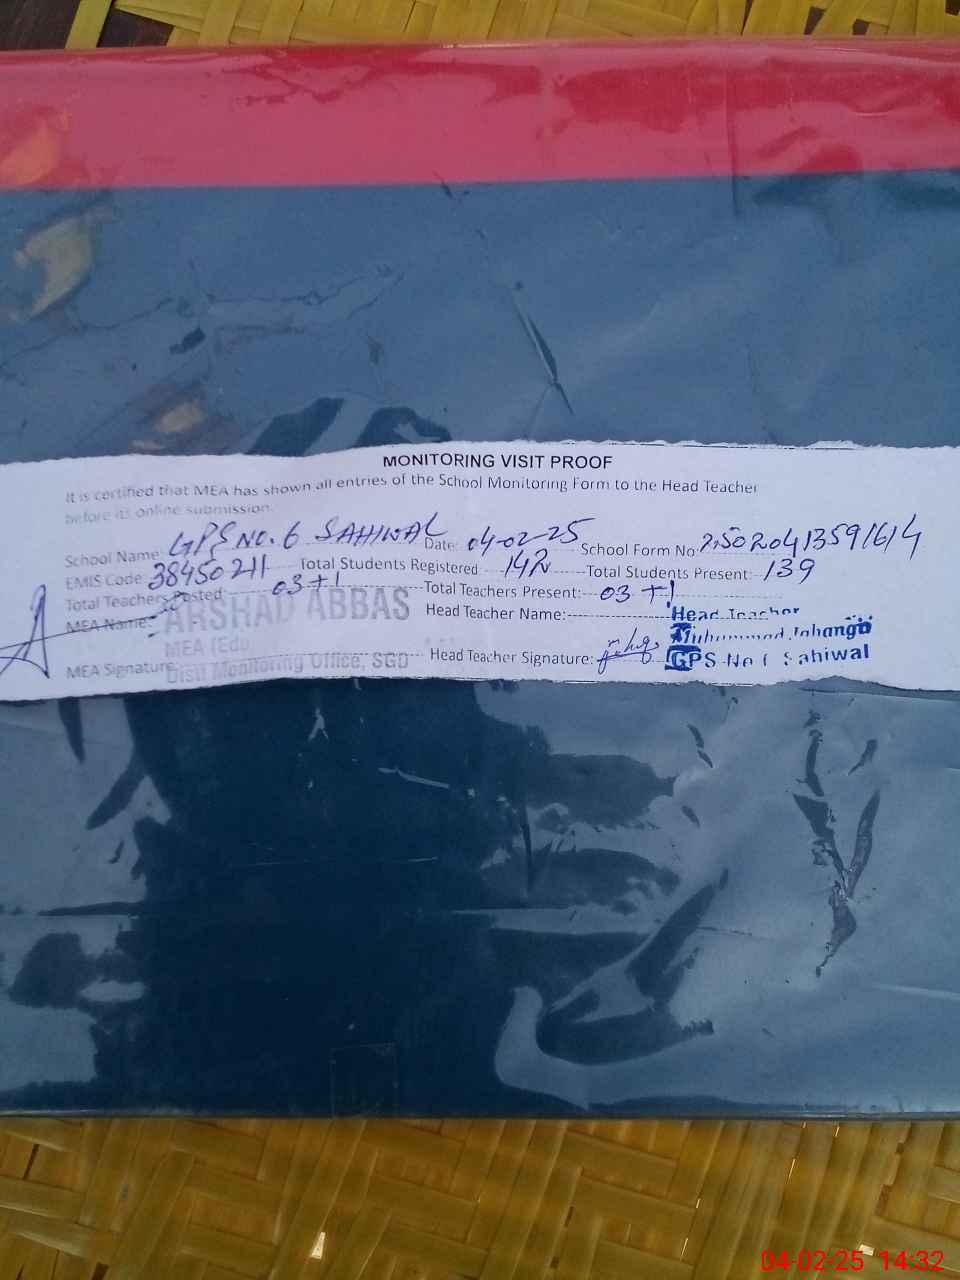 MONITORING VISIT PROOF
It is certified that MEA has shown all entries of the School Monitoring Form to the Head Teacher
before its online submission.
School Name: GPS NO. 6 SAHIWAL Date: 04-02-25 School Form No:
EMIS Code: 38450211 Total Students Registered 142 Total Students Present: 139
Total Teachers Posted: 03+1 Total Teachers Present: 03+1
MEA Name: ARSHAD ABBAS Head Teacher Name: Head Teacher
MEA (Edu) Muhammad Jahangir
MEA Signature: Distt Monitoring Office, SGD Head Teacher Signature: GPS No Sahiwal
04-02-25 14:32